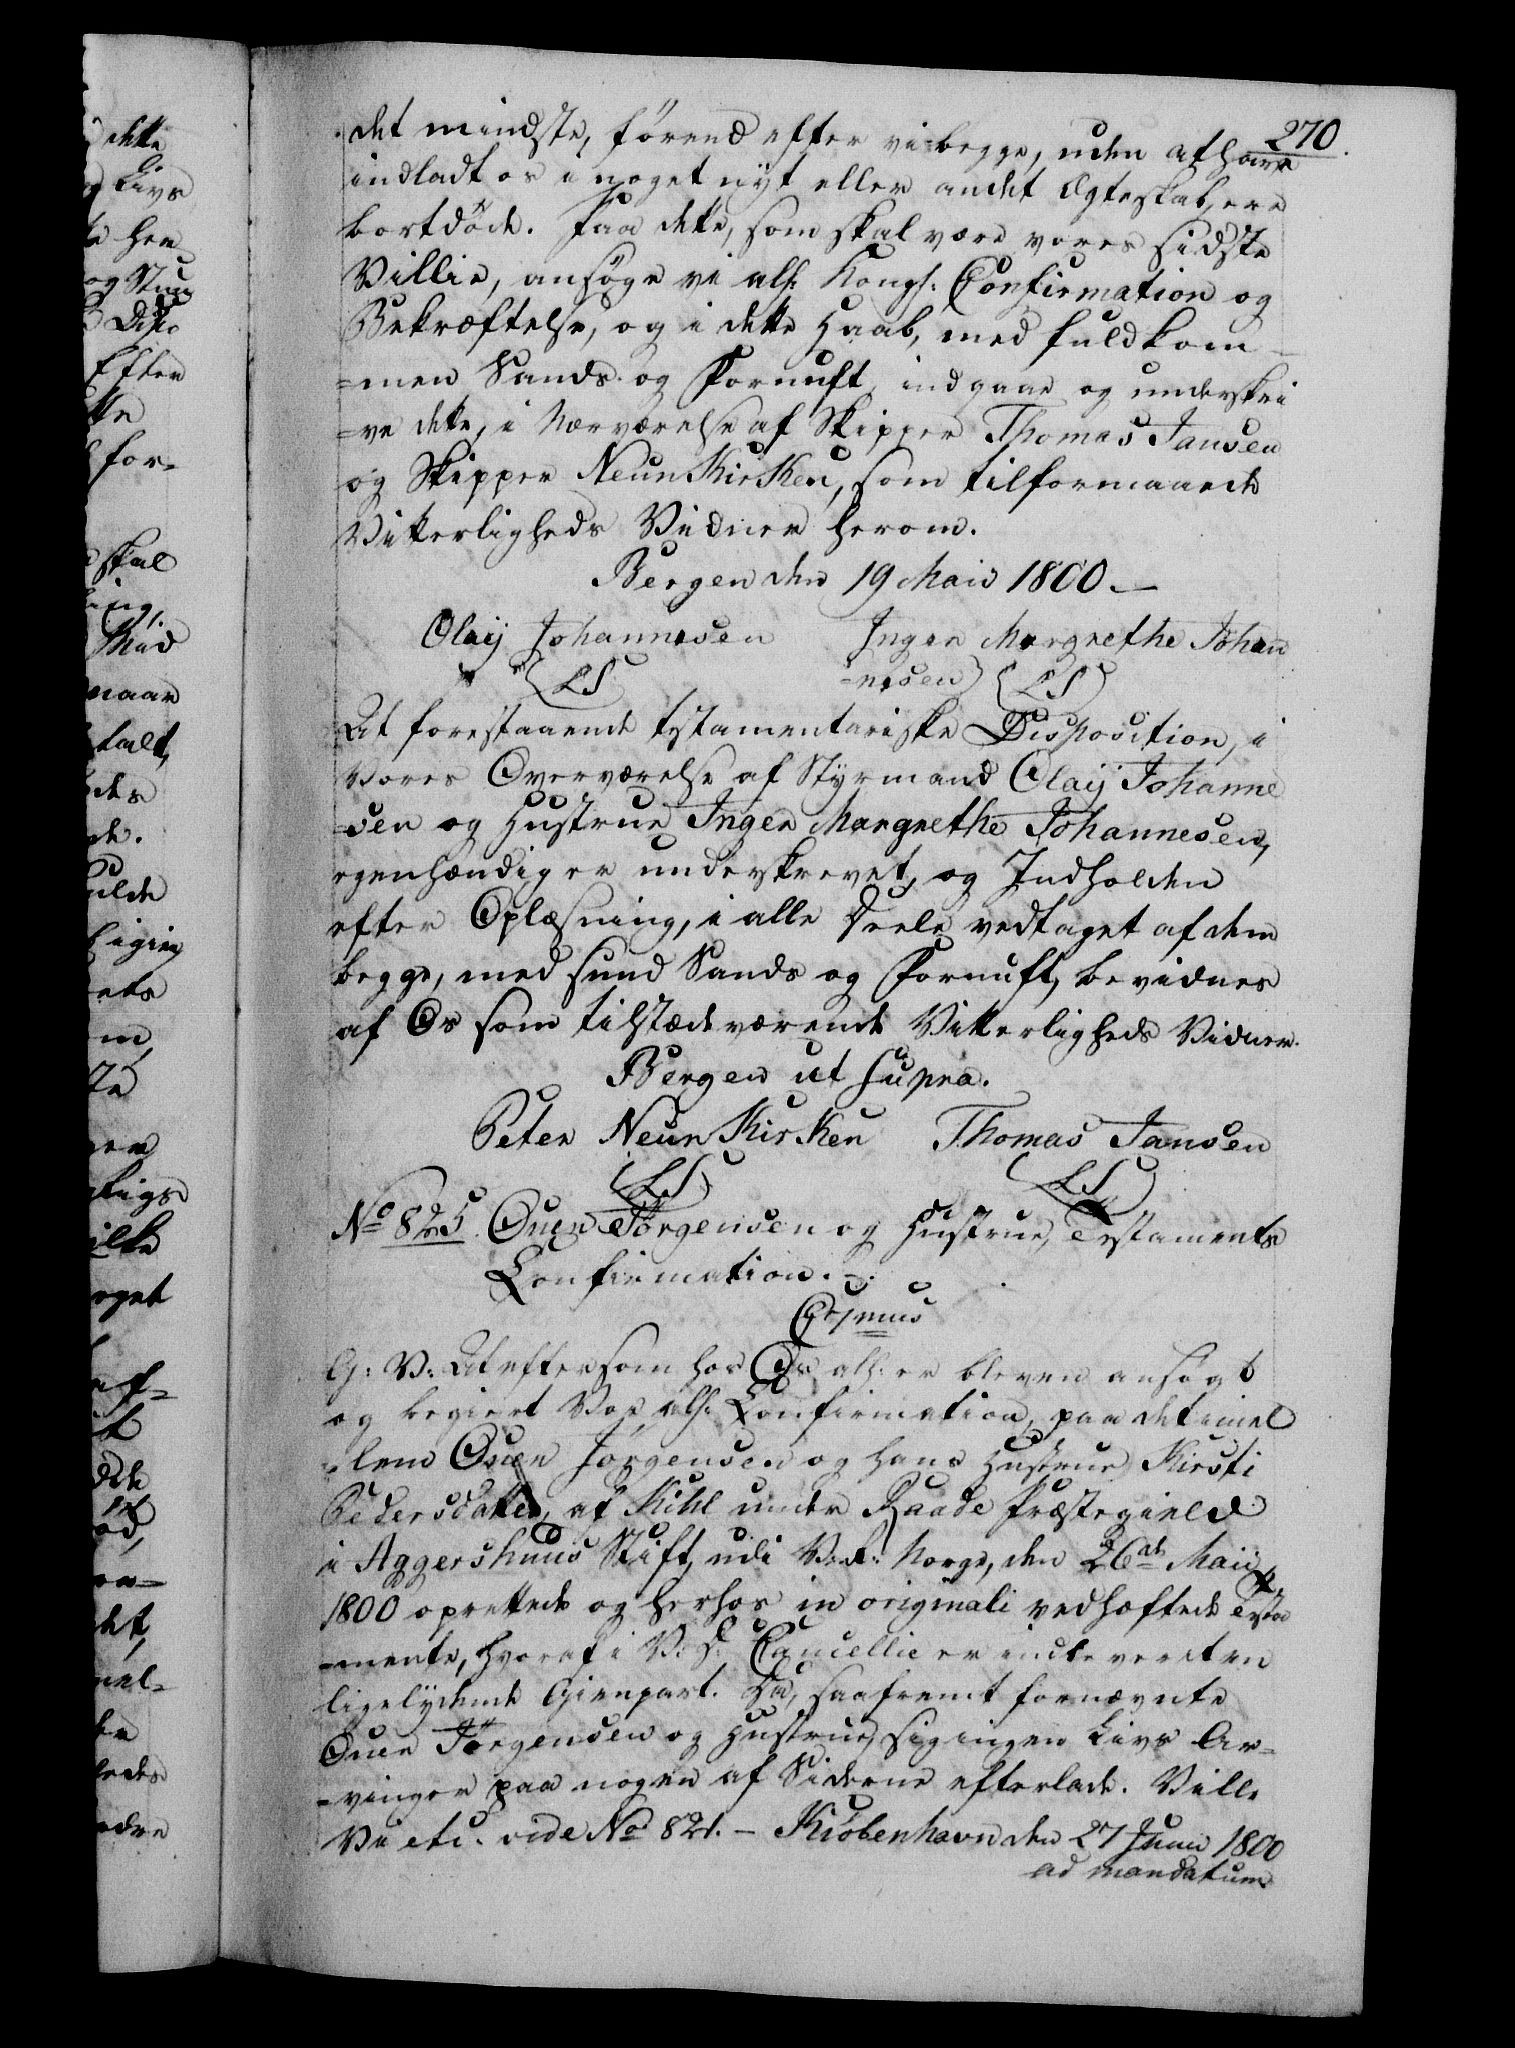 270.
det mindste, førend efter vi begge, uden at have
indladt os i noget nyt eller andet Ægteskab, ere
bortdøde. Paa dette, som skal være vores sidste
Villie, ansøge vi alh: Kongl: Confirmation og
Bekræftelse, og i dette Haab, med fuldkom-
=men Sands og Fornuft, indgaae og underskri
=ve dette, i Nærværelse af Skipper Thomas Jansen
og Skipper NeunKirKen, som tilformaaede
Vitterligheds Vidner herom.
Bergen den 19 Maii 1800.-
Olaij Johannesen Inger Margrethe Johan
=nesen
(LS) (LS)
At forestaaende testamentariske Disposition, i
Vores Overværelse af Styrmand Olaij Johanne
=sen og Hustrue Inger Margrethe Johannesen,
egenhændig er underskrevet, og Indholden
efter Oplæsning, i alle Deele vedtaget af dem
begge, med sund Sands og Fornuft, bevidnes
af Os som tilstædeværende Vitterligheds Vidner.
Bergen ut supra.
Peter NeunKirKen Thomas Jansen
(LS) (LS)
No 825. Ouen Jörgensen og Hustrue, Testaments
Confirmation.
C 7mus
G: V: At eftersom hos Os alh: er bleven ansøgt
og begiert Vor alh: Confirmation, paa det imel
=lem Ouen Jörgensen og hans Hustrue Kirsti
Pedersdatter, af Kihl under Raade Præstegield
i Aggershuus Stift, udi V: R: Norge, den 26de Maii
1800 oprettede og herhos in originali vedhæftede Testa
=mente, hvoraf i V: D: Cancellie er indleveret en
ligelydende Gienpart. Da, saafremt fornævnte
Ouen Jörgensen og Hustrue, sig ingen Livs Ar=
=vinger paa nogen af Siderne efterlade. Ville
Vi etc. vide No 821. - Kiöbenhavn den 27 Junii 1800
ad mandatum